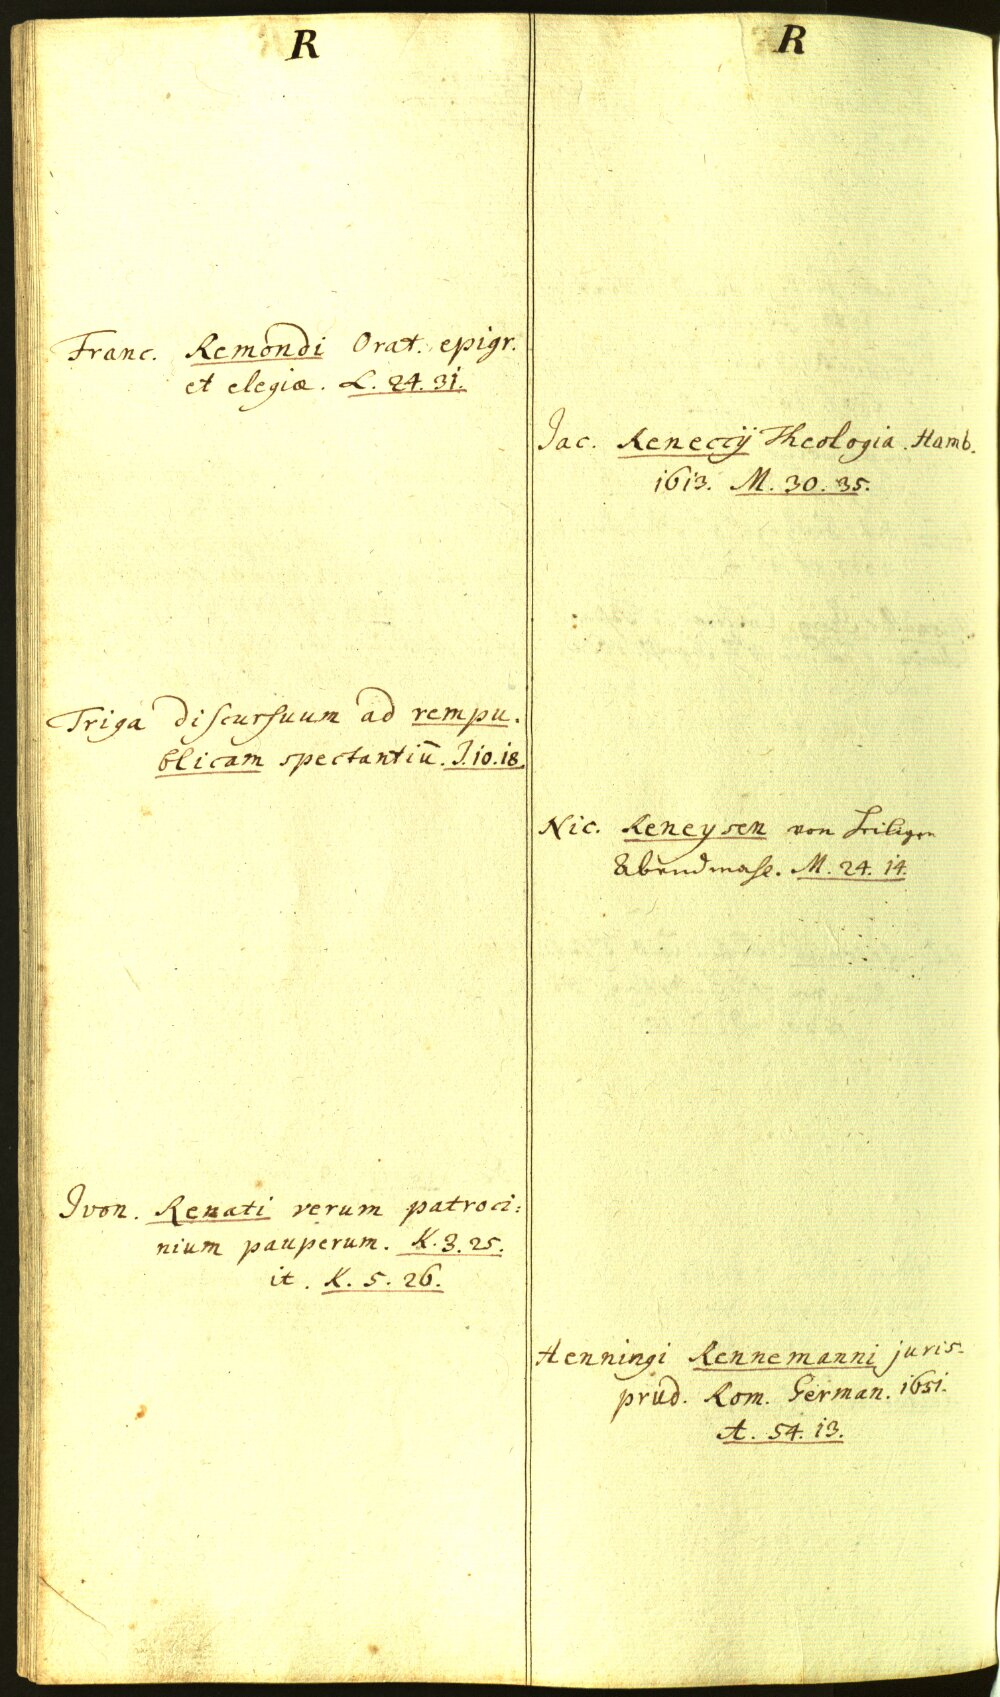 R
Franc. Remondi Orat. epigr.
et elegiæ. L. 24. 31.
Triga discursuum ad rempu.
blicam spectantiū. J. 10. 18.
Ivon. Renati verum patroci:
nium pauperum. K. 3. 25.
it. K. 5. 26.
R
Jac. Reneccij Theologia. Hamb.
1613. M. 30. 35.
Nic. Reneysen von heiligen
Abendmahl. M. 24. 14.
Henningi Rennemanni juris-
prud. Rom. German. 1651.
A. 54. 13.